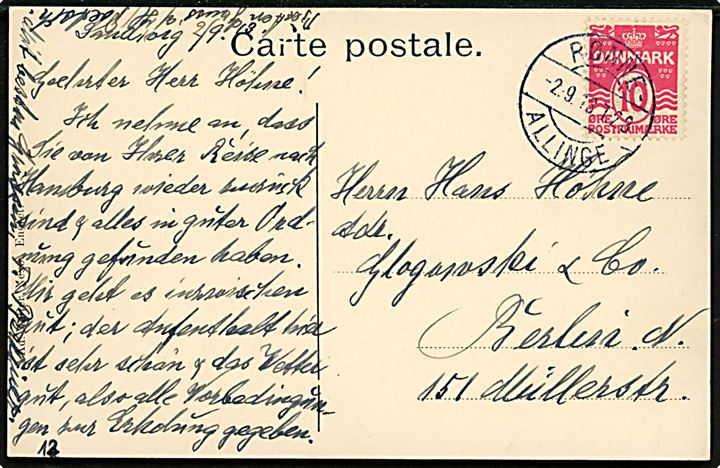 Carte postale.
Sandvig 2/9.
Geehrter Herr Höhne!
Ich nehme an, dass
Sie von Ihrer Reise nach
Hamburg wieder zurück
sind & alles in guter Ord-
nung gefunden haben.
Mir geht es inzwischen
gut; der Aufenthalt hier
ist sehr schön & das Wetter
gut, also alle Vorbedingun-
gen zur Erholung gegeben.
Mit besten Grüssen
12
RØNNE
-2.9.
ALLINGE
DANMARK
10
ØRE ØRE
POSTFRIMÆRKE
Herrn Hans Höhne
adr.
Glogowski & Co.
Berlin N.
151 Müllerstr.